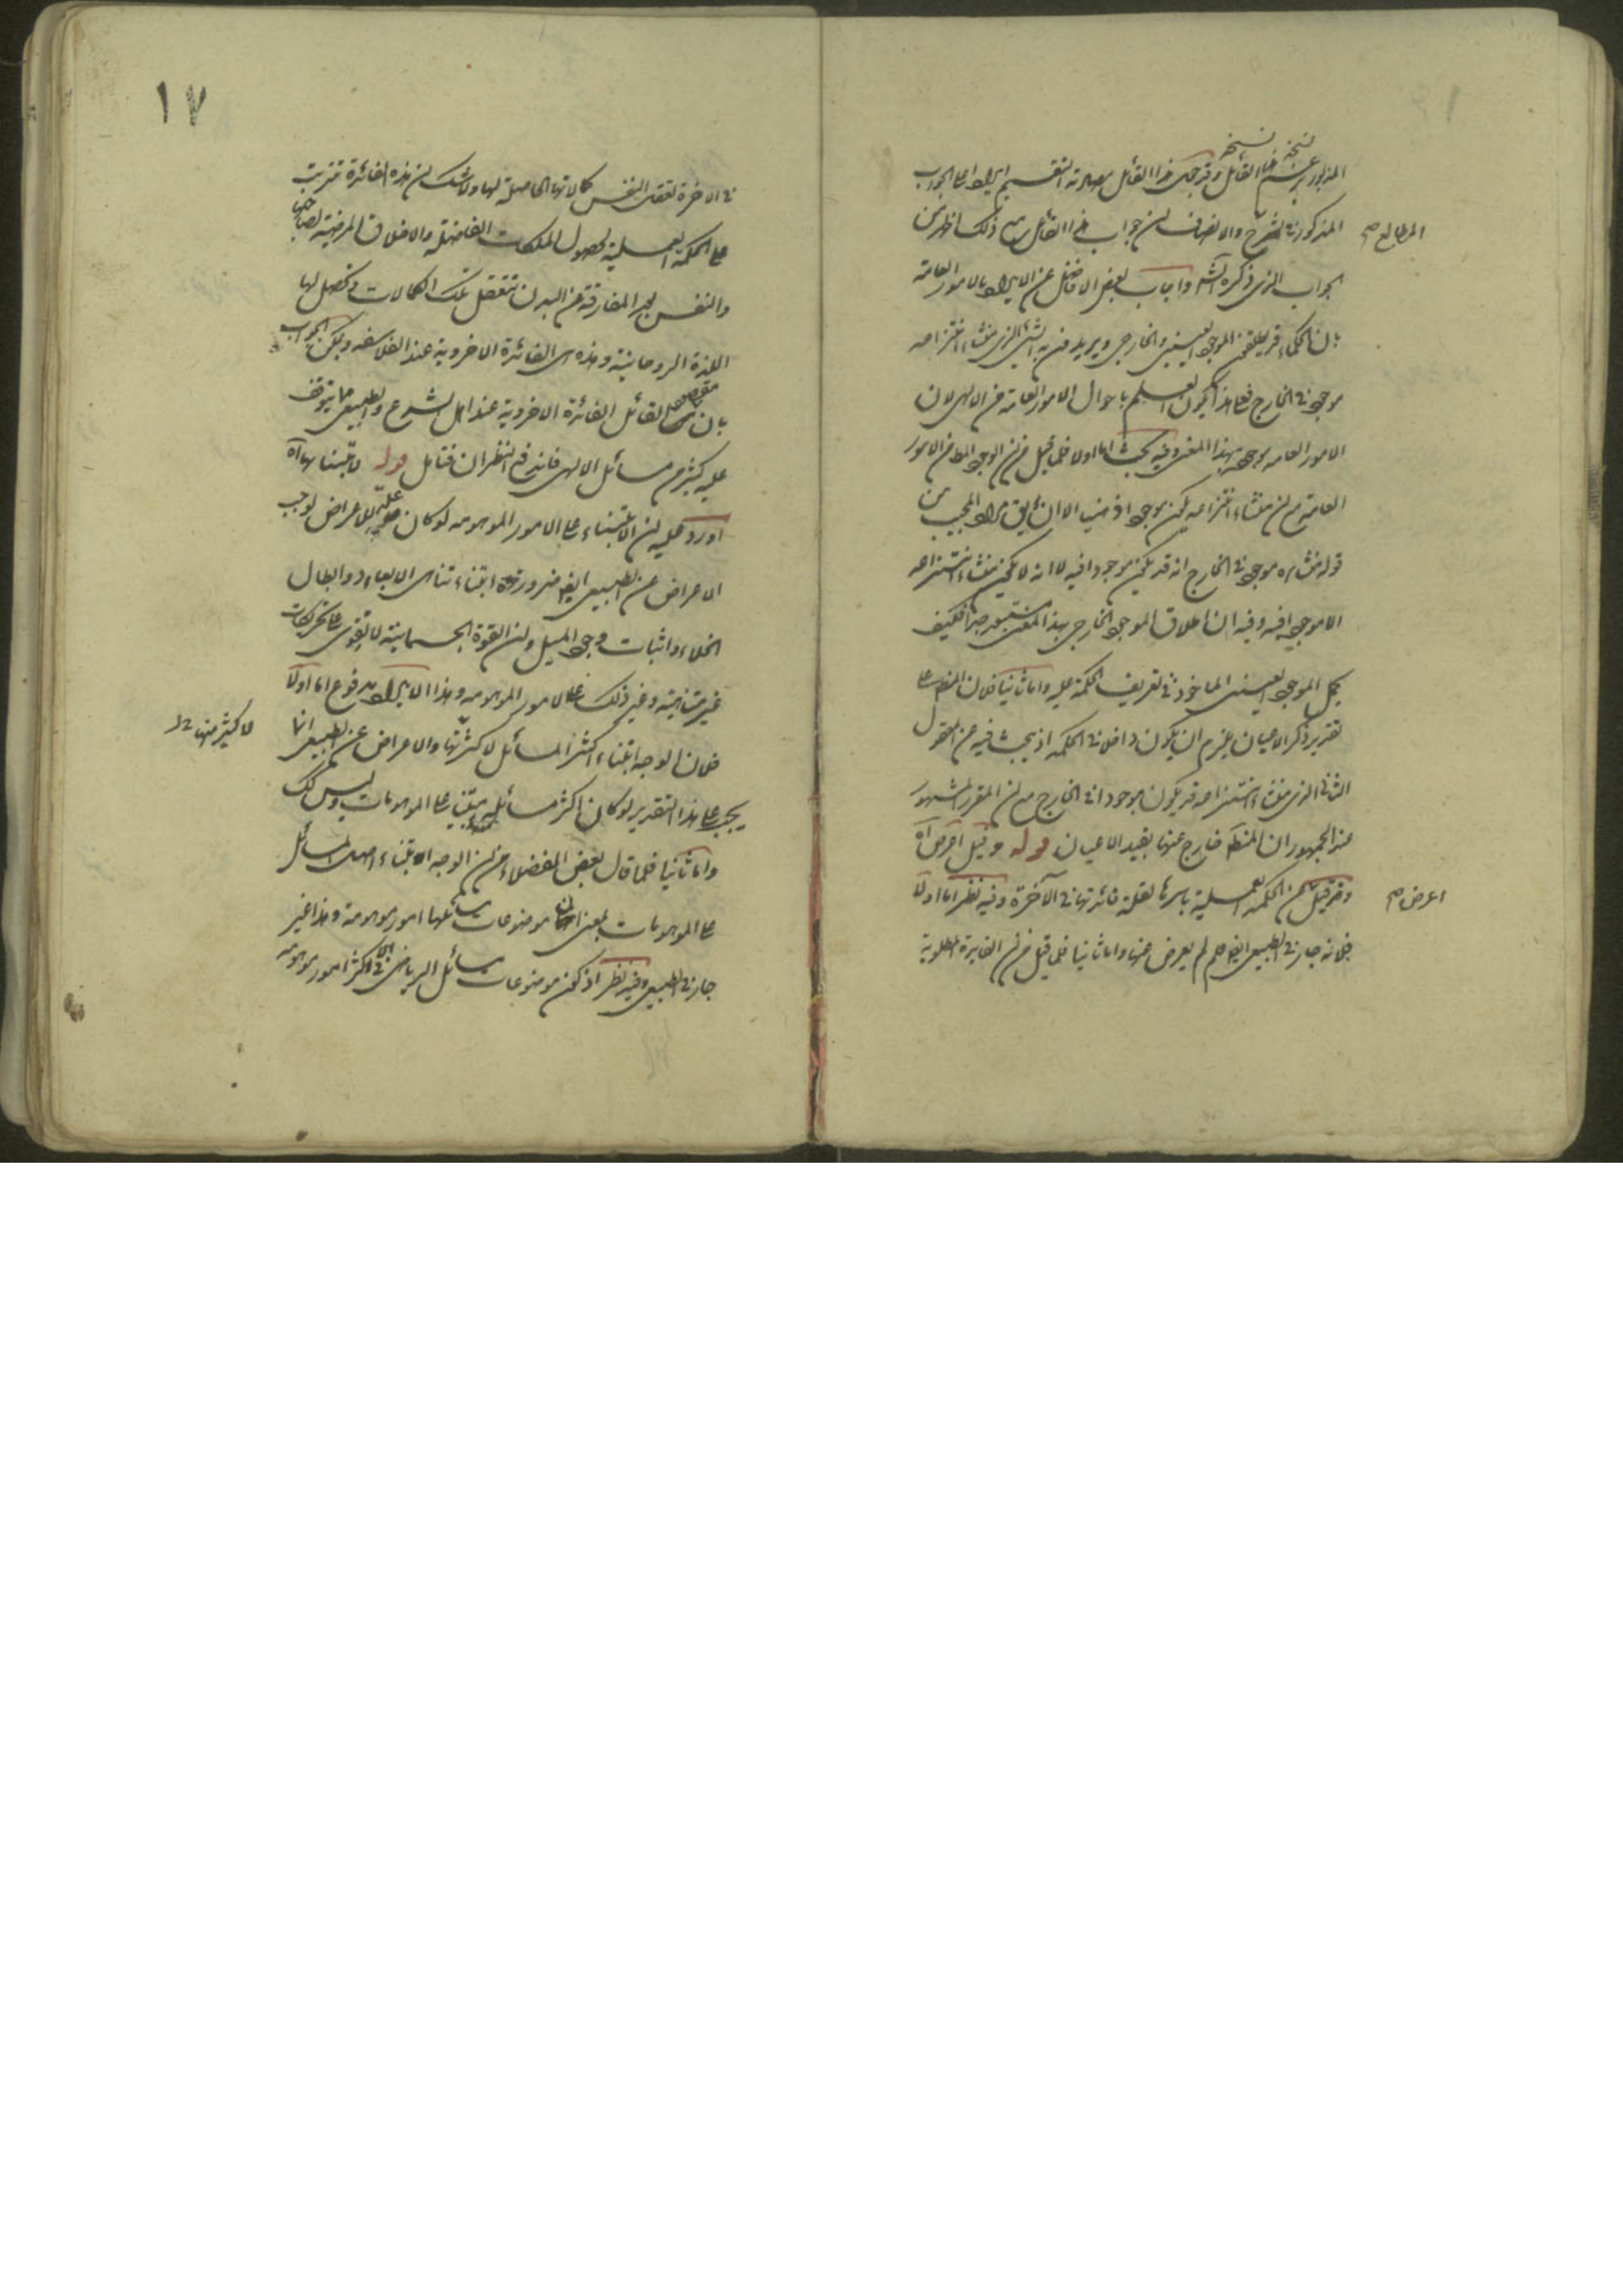 المذكور في الشرح والانصاف ان جواب هذا القائل ذلك اظهر من
المطالع صح
الجواب الذي ذكره الشم واجاب بعض الافاضل عن الايراد بالامور العامة
بان الحكماء قد يطلقون الموجود العيني والخارجي ويريدون به الشئ الذي منشاء انتزاعه
موجود في الخارج فعلى هذا يكون العلم باحوال الامور العامة من الالهى لان
الامور العامه موجوده بهذا المعنى وفيه بحث اما اولا فلما قيل من ان الوجود المط من الامور
العامة مع ان منشاء انتزاعه يكون موجودا ذهنيا الا ان يق مراد المجيب من
قوله منشاؤه موجود في الخارج انه قد يكون موجودا فيه لا انه لا يكون منشاء انتزاعه
الا موجودا فيه وفيه ان اطلاق الموجود الخارجي بهذا المعنى مستبعد جدا فكيف
يحمل الموجود العيني الماخوذ في تعريف الحكمة عليه واما ثانيا فلان المنطق على
تقدير ذكر الاعيان يلزم ان يكون داخلا في الحكمة اذ يبحث فيه عن المعقول
الثاني الذي منشاء انتزاعه قد يكون موجودا في الخارج مع ان المقرر المشهور
عند الجمهور ان المنطق خارج عنها بقيد الاعيان قوله وقيل اعرض آه
وقد قيل ان الحكمة العملية باسرها لقلة فائدتها في الآخرة وفيه نظر اما اولا
اعرض صح
فلانه جاز في الطبيعي ايض فلم لم يعرض عنها واما ثانيا فلما قيل من ان الفايدة المطلوبة
١٧
في الاخرة تعقل النفس كمالاتها الحاصلة لها ولا شك ان هذه الفائدة تترتب
على الحكمة العملية لحصول الملكات الفاضلة والاخلاق المرضية لصاحبها
والنفس بعد المفارقة عن البدن تتعقل تلك الكمالات وتحصل لها
اللذة الروحانية وهذه هى الفائدة الاخروية عند الفلاسفه ويمكن الجواب
بان مقصود القائل الفائدة الاخروية عند اهل الشرع والطبيعى مما يتوقف
عليه كثير من مسائل الالهى فاندفع النظران فتامل قوله لابتنائها آه
اورد عليه ان الابتناء على الامور الموهومه لو كان علة للاعراض لوجب
الاعراض عن الطبيعى ايض ضرورة ابتناء تناهى الابعاد وابطال
الخلاء واثبات وجود الميل وان القوة الجسمانية لا تقوى على تحريكات
غير متناهية وغير ذلك على الامور الموهومه وهذا الايراد مدفوع اما اولا
فلان الوجه ابتناء اكثر المسائل لا كثرتها والاعراض عن الطبيعى انما
لا كثير منها
يجب على هذا التقدير لو كان اكثر مسائله مبتنيا على الموهومات وليس كك
واما ثانيا فلما قال بعض الفضلاء من ان الوجه الابتناء المسائل
على الموهومات بمعنى ان موضوعات مسائلها امور موهومة وهذا غير
جار في الطبيعى وفيه نظر اذ كون موضوعات مسائل الرياضى في الاكثر امور موهومه